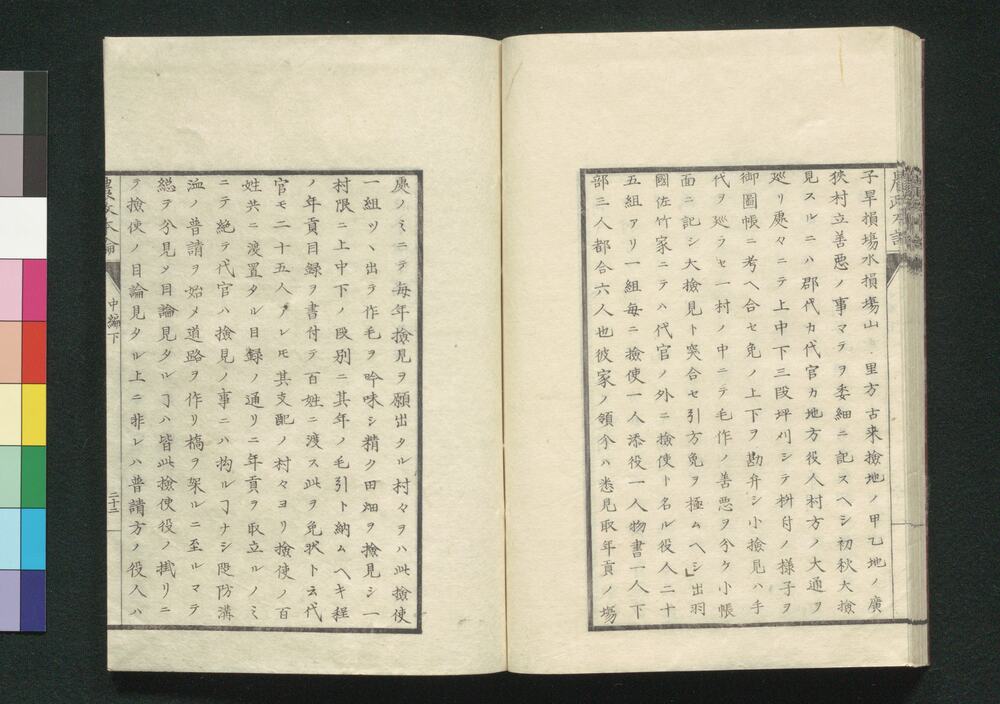 子旱損塲水損塲山里方古来撿地ノ甲乙地ノ廣
狹村立善悪ノ事マテヲ委細ニ記スヘシ初秋大撿
見スルニハ郡代カ代官カ地方役人村方ノ大通ヲ
廵リ處々ニテ上中下三段坪刈シテ枡付ノ様子ヲ
御圖帳ニ考ヘ合セ免ノ上下ヲ勘弁シ小撿見ハ手
代ヲ廵ラセ一村ノ中ニテ毛作ノ善悪ヲ分ケ小帳
面ニ記シ大撿見ト突合セ引方免ヲ極ムヘシ」出羽
國佐竹家ニテハ代官ノ外ニ撿使ト名ル役人二十
五組アリ一組毎ニ撿使一人添役一人物書一人下
部三人都合六人也彼家ノ領分ハ悉見取年貢ノ塲
處ノミニテ毎年撿見ヲ願出タル村々ヲハ此撿使
一組ツヽ出テ作毛ヲ吟味シ精ク田畑ヲ撿見シ一
村限ニ上中下ノ段別ニ其年ノ毛引ト納ムヘキ程
ノ年貢目録ヲ書付テ百姓ニ渡ス此ヲ免状ト云代
官モ二十五人アレ𪜈其支配ノ村々ヨリ撿使ノ百
姓共ニ渡置タル目録ノ通リニ年貢ヲ取立ルノミ
ニテ絶テ代官ハ撿見ノ事ニハ拘ルヿナシ堤防溝
洫ノ普請ヲ始メ道路ヲ作リ橋ヲ架ルニ至ルマテ
総ヲ分見シ目論見タルヿハ皆此撿使役ノ掛リニ
テ撿使ノ目論見タル上ニ非レハ普請方ノ役人ハ
農政本論
中編下
二十二